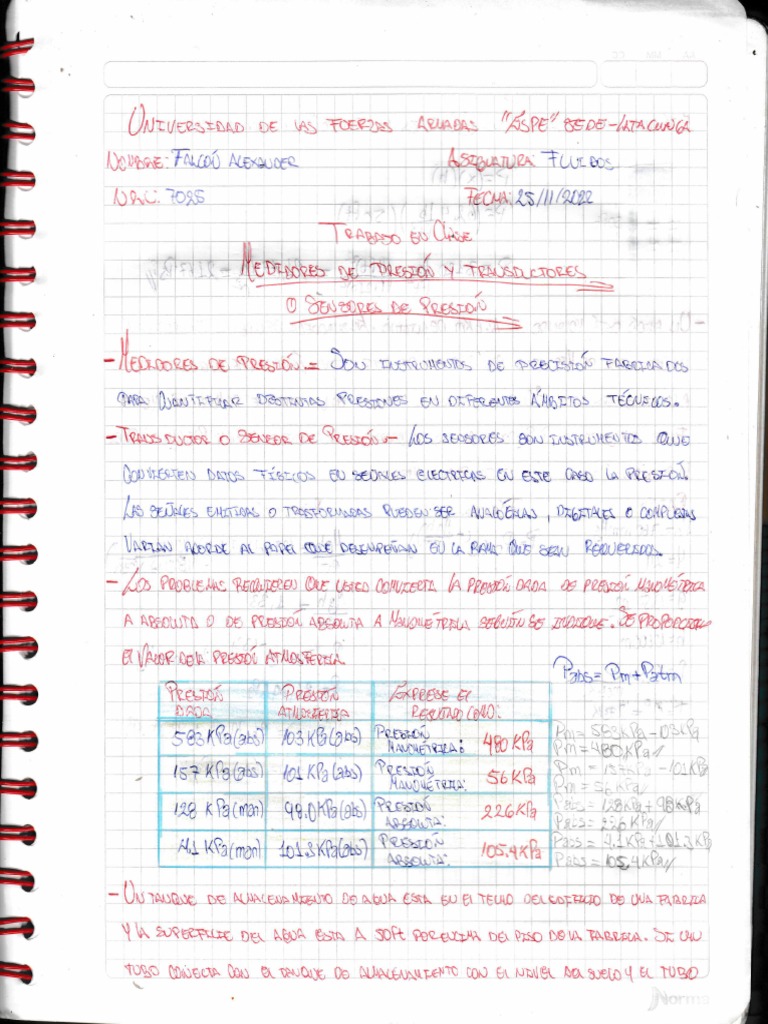 UNIVERSIDAD DE LAS FUERZAS ARMADAS "ESPE" SEDE-LATACUNGA
NOMBRE: FALCÓN ALEXANDER ASIGNATURA: FLUIDOS
NRC: 7025 FECHA: 25/11/2022
TRABAJO EN CLASE
MEDIDORES DE PRESIÓN Y TRANSDUCTORES
O SENSORES DE PRESIÓN
- MEDIDORES DE PRESIÓN = SON INSTRUMENTOS DE PRECISIÓN FABRICADOS
PARA CUANTIFICAR DISTINTAS PRESIONES EN DIFERENTES ÁMBITOS TÉCNICOS.
- TRANSDUCTOR O SENSOR DE PRESIÓN - LOS SENSORES SON INSTRUMENTOS QUE
CONVIERTEN DATOS FÍSICOS EN SEÑALES ELECTRICAS EN ESTE CASO LA PRESIÓN.
LAS SEÑALES EMITIDAS O TRASFORMADAS PUEDEN SER ANALÓGICAS, DIGITALES O COMPUESTAS
VARIAN ACORDE AL PAPEL QUE DESEMPEÑAN EN LA RAMA QUE SEAN REQUERIDOS.
- LOS PROBLEMAS REQUIEREN QUE USTED CONVIERTA LA PRESIÓN DADA DE PRESIÓN MANOMÉTRICA
A ABSOLUTA O DE PRESIÓN ABSOLUTA A MANOMÉTRICA SEGÚN SE INDIQUE. SE PROPORCIONA
EL VALOR DE LA PRESIÓN ATMOSFERICA.
Pabs = Pm + Patm
PRESIÓN DADA PRESIÓN ATMOSFERICA EXPRESE EL RESULTADO COMO:
583 KPa (abs) 103 KPa (abs) PRESIÓN MANOMÉTRICA: 480 KPa
Pm = 583 KPa - 103 KPa
Pm = 480 KPa //
157 KPa (abs) 101 KPa (abs) PRESIÓN MANOMÉTRICA: 56 KPa
Pm = 157 KPa - 101 KPa
Pm = 56 KPa //
128 KPa (man) 98.0 KPa (abs) PRESIÓN ABSOLUTA: 226 KPa
Pabs = 128 KPa + 98 KPa
Pabs = 226 KPa //
4.1 KPa (man) 101.3 KPa (abs) PRESIÓN ABSOLUTA: 105.4 KPa
Pabs = 4.1 KPa + 101.3 KPa
Pabs = 105.4 KPa //
- UN TANQUE DE ALMACENAMIENTO DE AGUA ESTA EN EL TECHO DEL EDIFICIO DE UNA FABRICA
Y LA SUPERFICIE DEL AGUA ESTA A 50FT POR ENCIMA DEL PISO DE LA FABRICA. SI UN
TUBO CONECTA CON EL TANQUE DE ALMACENAMIENTO CON EL NIVEL DEL SUELO Y EL TUBO
Norma